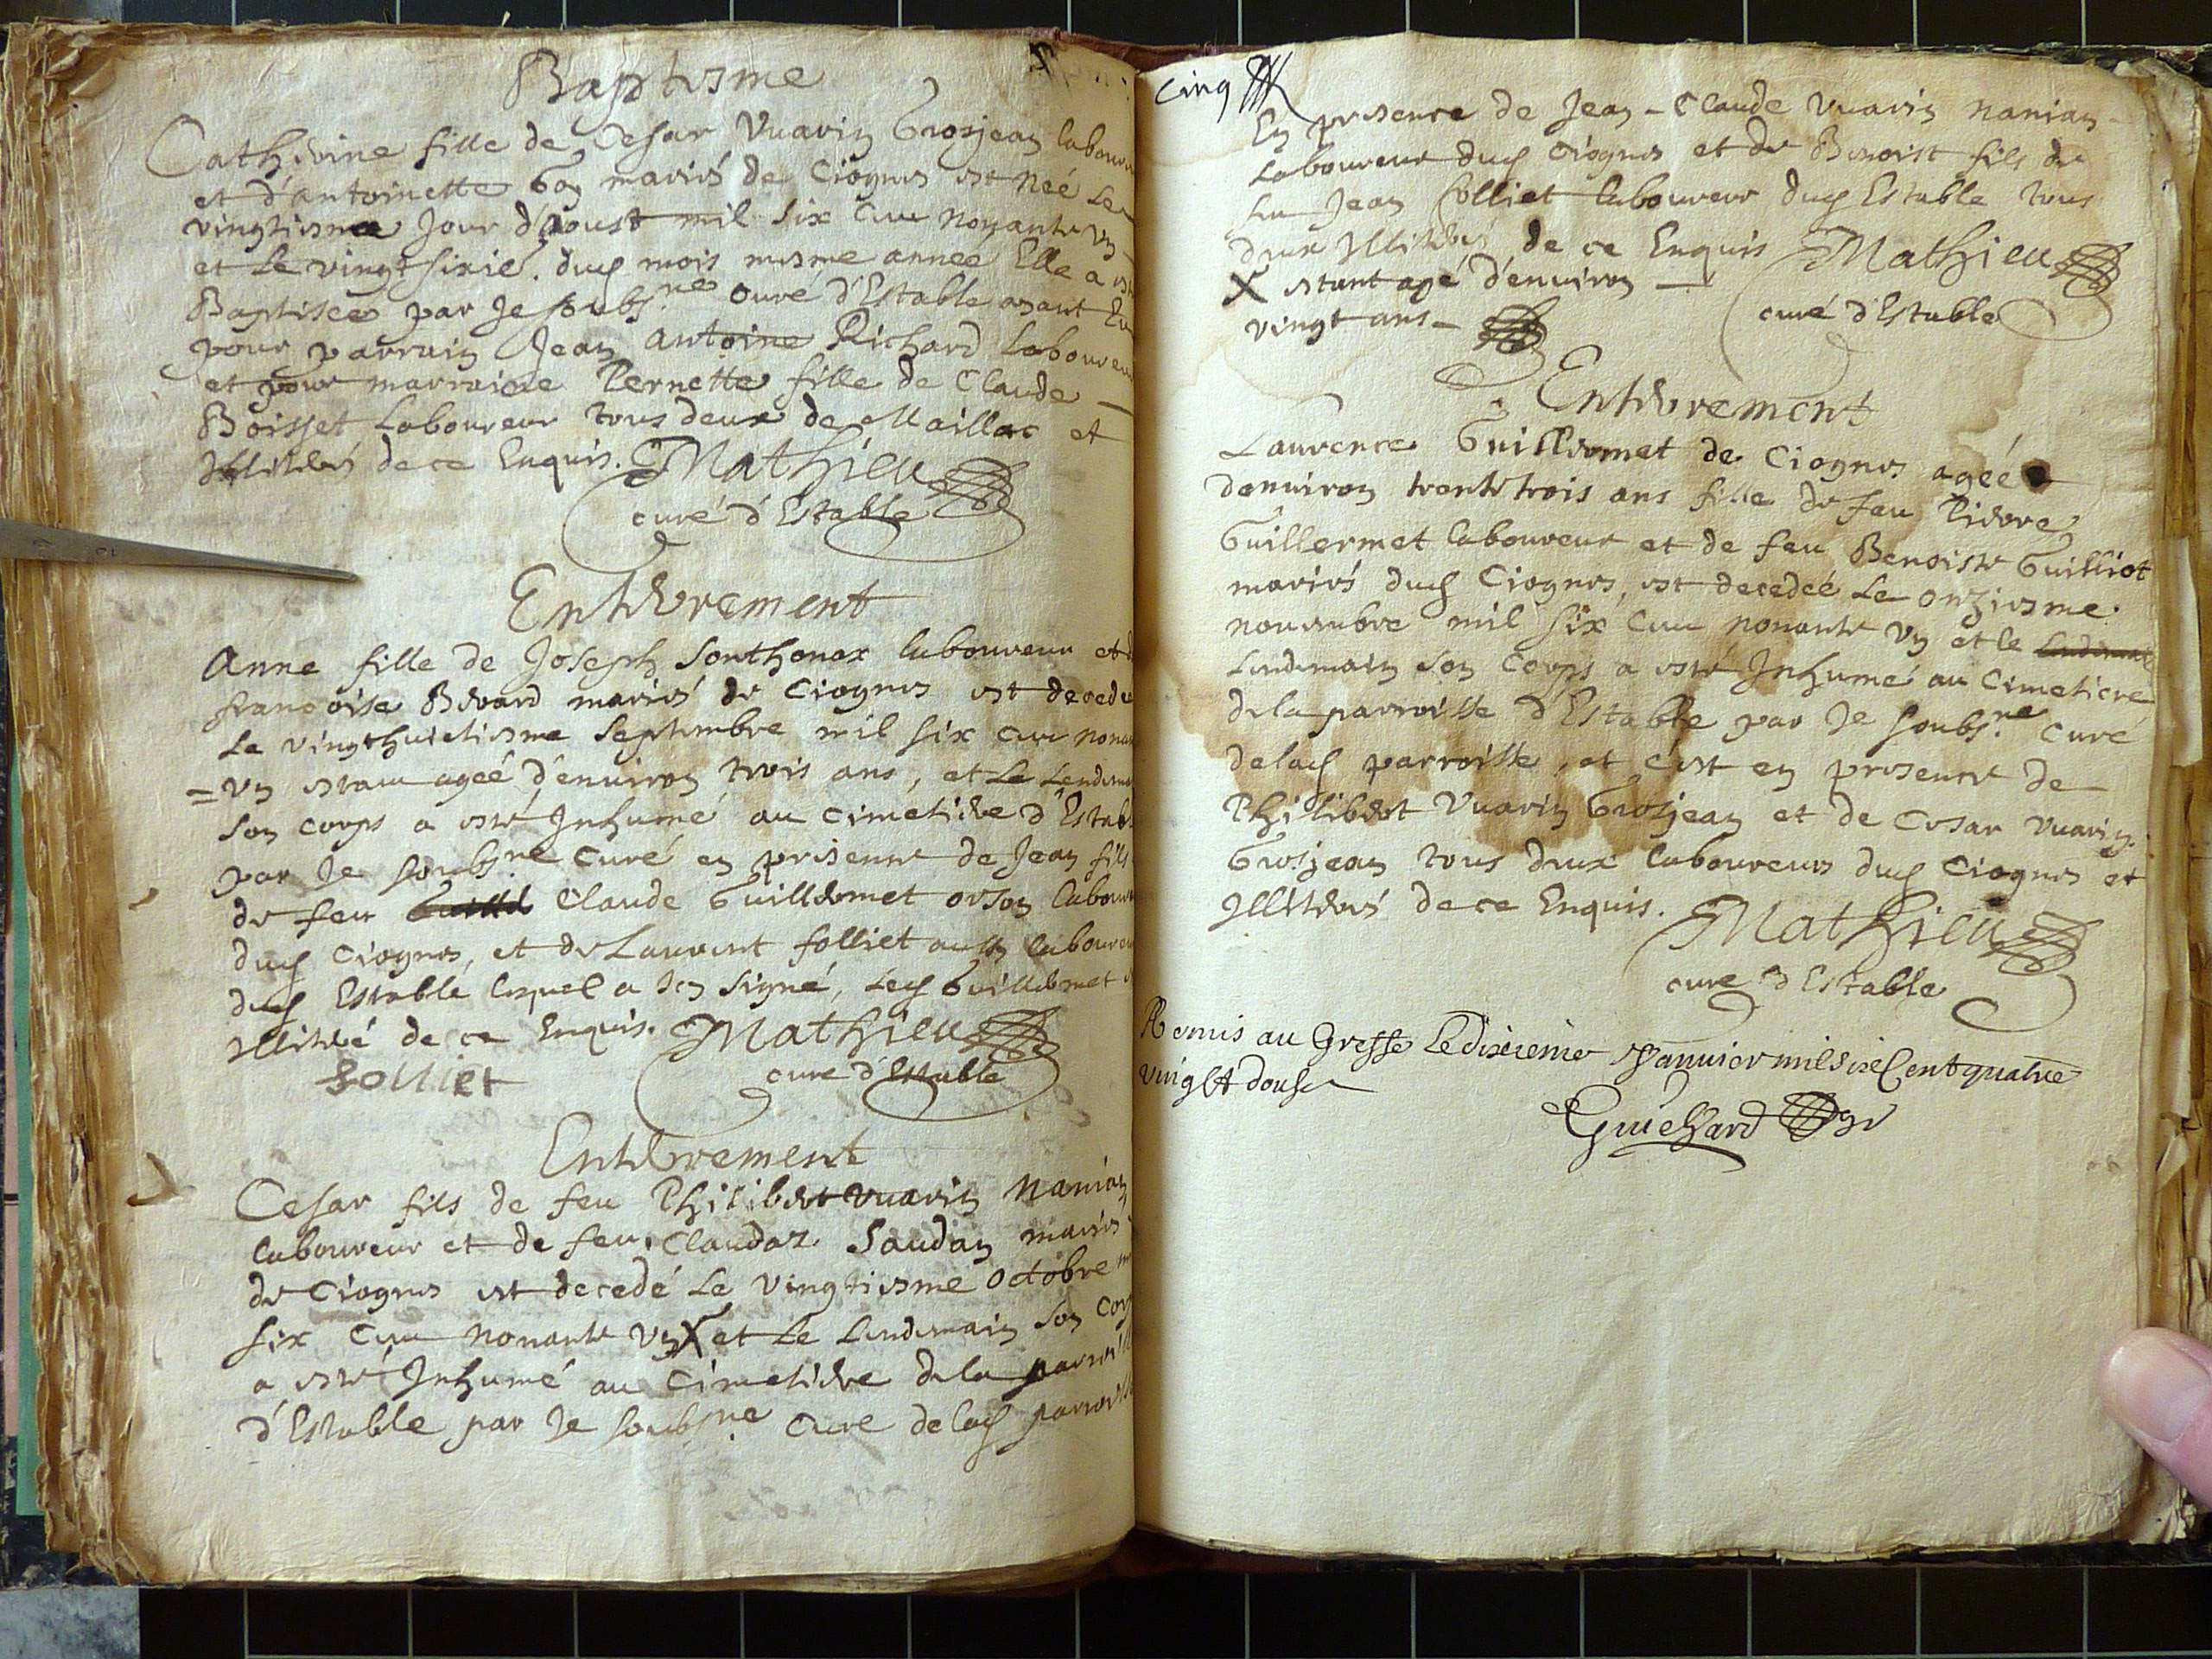 Baptesme
Catherine fille de Cesar Vuarin Grosjean labour
et d'antoinette Goy mariés de Ciognes est Neé Le
vingtiesme Jour d'Aoust mil six cen Nonante un
et Le vingt sixié. dud mois mesme anneé Elle a est
Baptiseé par Je soubs.ne Curé d'Estable aiant Eu
pour parrain Jean antoine Richard Laboureur
et pour marraine Pernette fille de Claude
Boisset Laboureur tous deux de Maillac et
Illiterés de ce Enquis. Mathieu
curé d'Estable
Enterrement
Anne fille de Joseph Sonthonax laboureur et
françoise Berard mariés de Ciognes est decede
Le vingthuictiesme Septembre mil six cen nonan
= un estam ageé d'environ trois ans, et Le Lendem
son corps a esté Inhumé au Cimetiere d'Estab
par Je soubs.ne Curé en presence de Jean fils
de feu Claude Guillermet orson labour
dud Ciognes, et de Laurent folliet aussy laboureu
dud Estable lequel a Icy signé, Led Guillermet
Illiteré de ce Enquis. Mathieu
folliet curé d'Estable
Enterrement
Cesar fils de feu Philibert Vuarin Nanian
laboureur et de feu Claudaz Saudan mariés
de Ciognes est decedé Le vingtiesme Octobre m
six cen nonante un X et Le Lendemain son Cor
a esté Inhumé au Cimetiere de la parroi
d'Estable par Je soubs.ne Curé de lad parroi
Cinq
En presence de Jean-Claude Vuarin Nanian
Laboureur dud Ciognes et de Benoist fils de
feu Jean folliet laboureur dud Estable tous
deux Illiterés de ce Enquis Mathieu
X estant agé d'environ
vingt ans curé d'Estable
Enterrement
Laurence Guillermet de Ciognes ageé
d'environ trente trois ans fille de feu Pierre
Guillermet laboureur et de feu Benoiste Guilliot
mariés dud Ciognes, est decedeé Le onziesme
novembre mil six cen nonante un et le Lendemai
Lendemain son corps a esté Inhumé au Cimetiere
de la parroisse d'Estable par Je soubs.ne Curé
de lad parroisse, et c'est en presence de
Philibert Vuarin Grosjean et de Cesar Vuarin
Grosjean tous deux laboureurs dud Ciognes et
Illiterés de ce Enquis. Mathieu
curé d'Estable
Remis au Greffe Le dixieme Januier mil six Cent quatre
vingt douse
Guichard